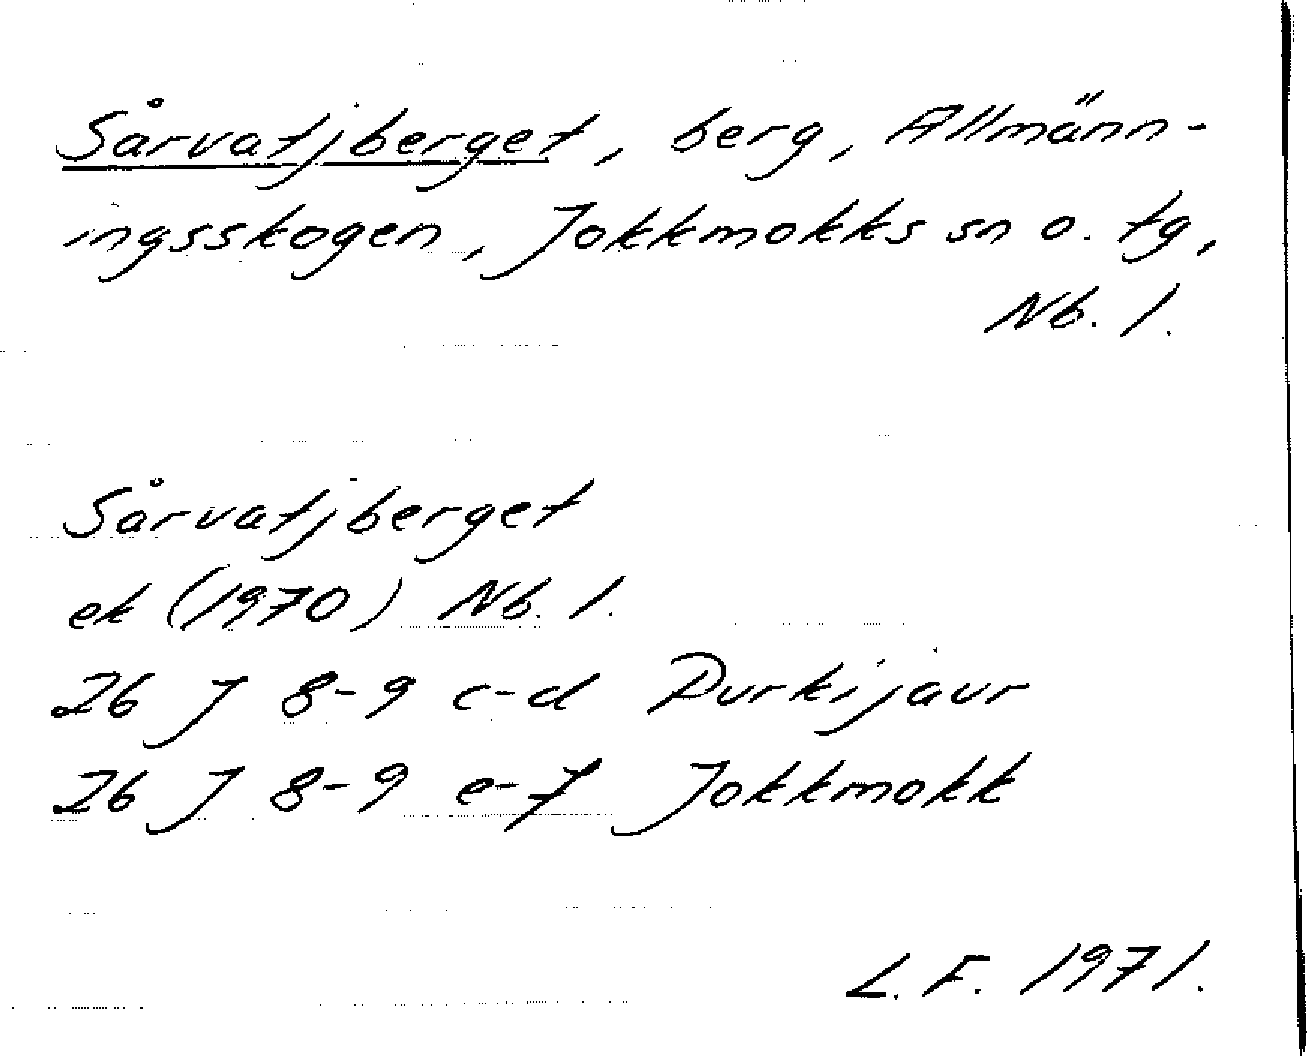 Sårvatjberget, berg, Allmänn-
ingsskogen, Jokkmokks sn o. tg,
Nb. l.
Sårvatjberget
ek (1970) Nb. l.
26 J 8-9 c-d Purkijaur
26 J 8-9 e-f Jokkmokk
L. F. 1971.